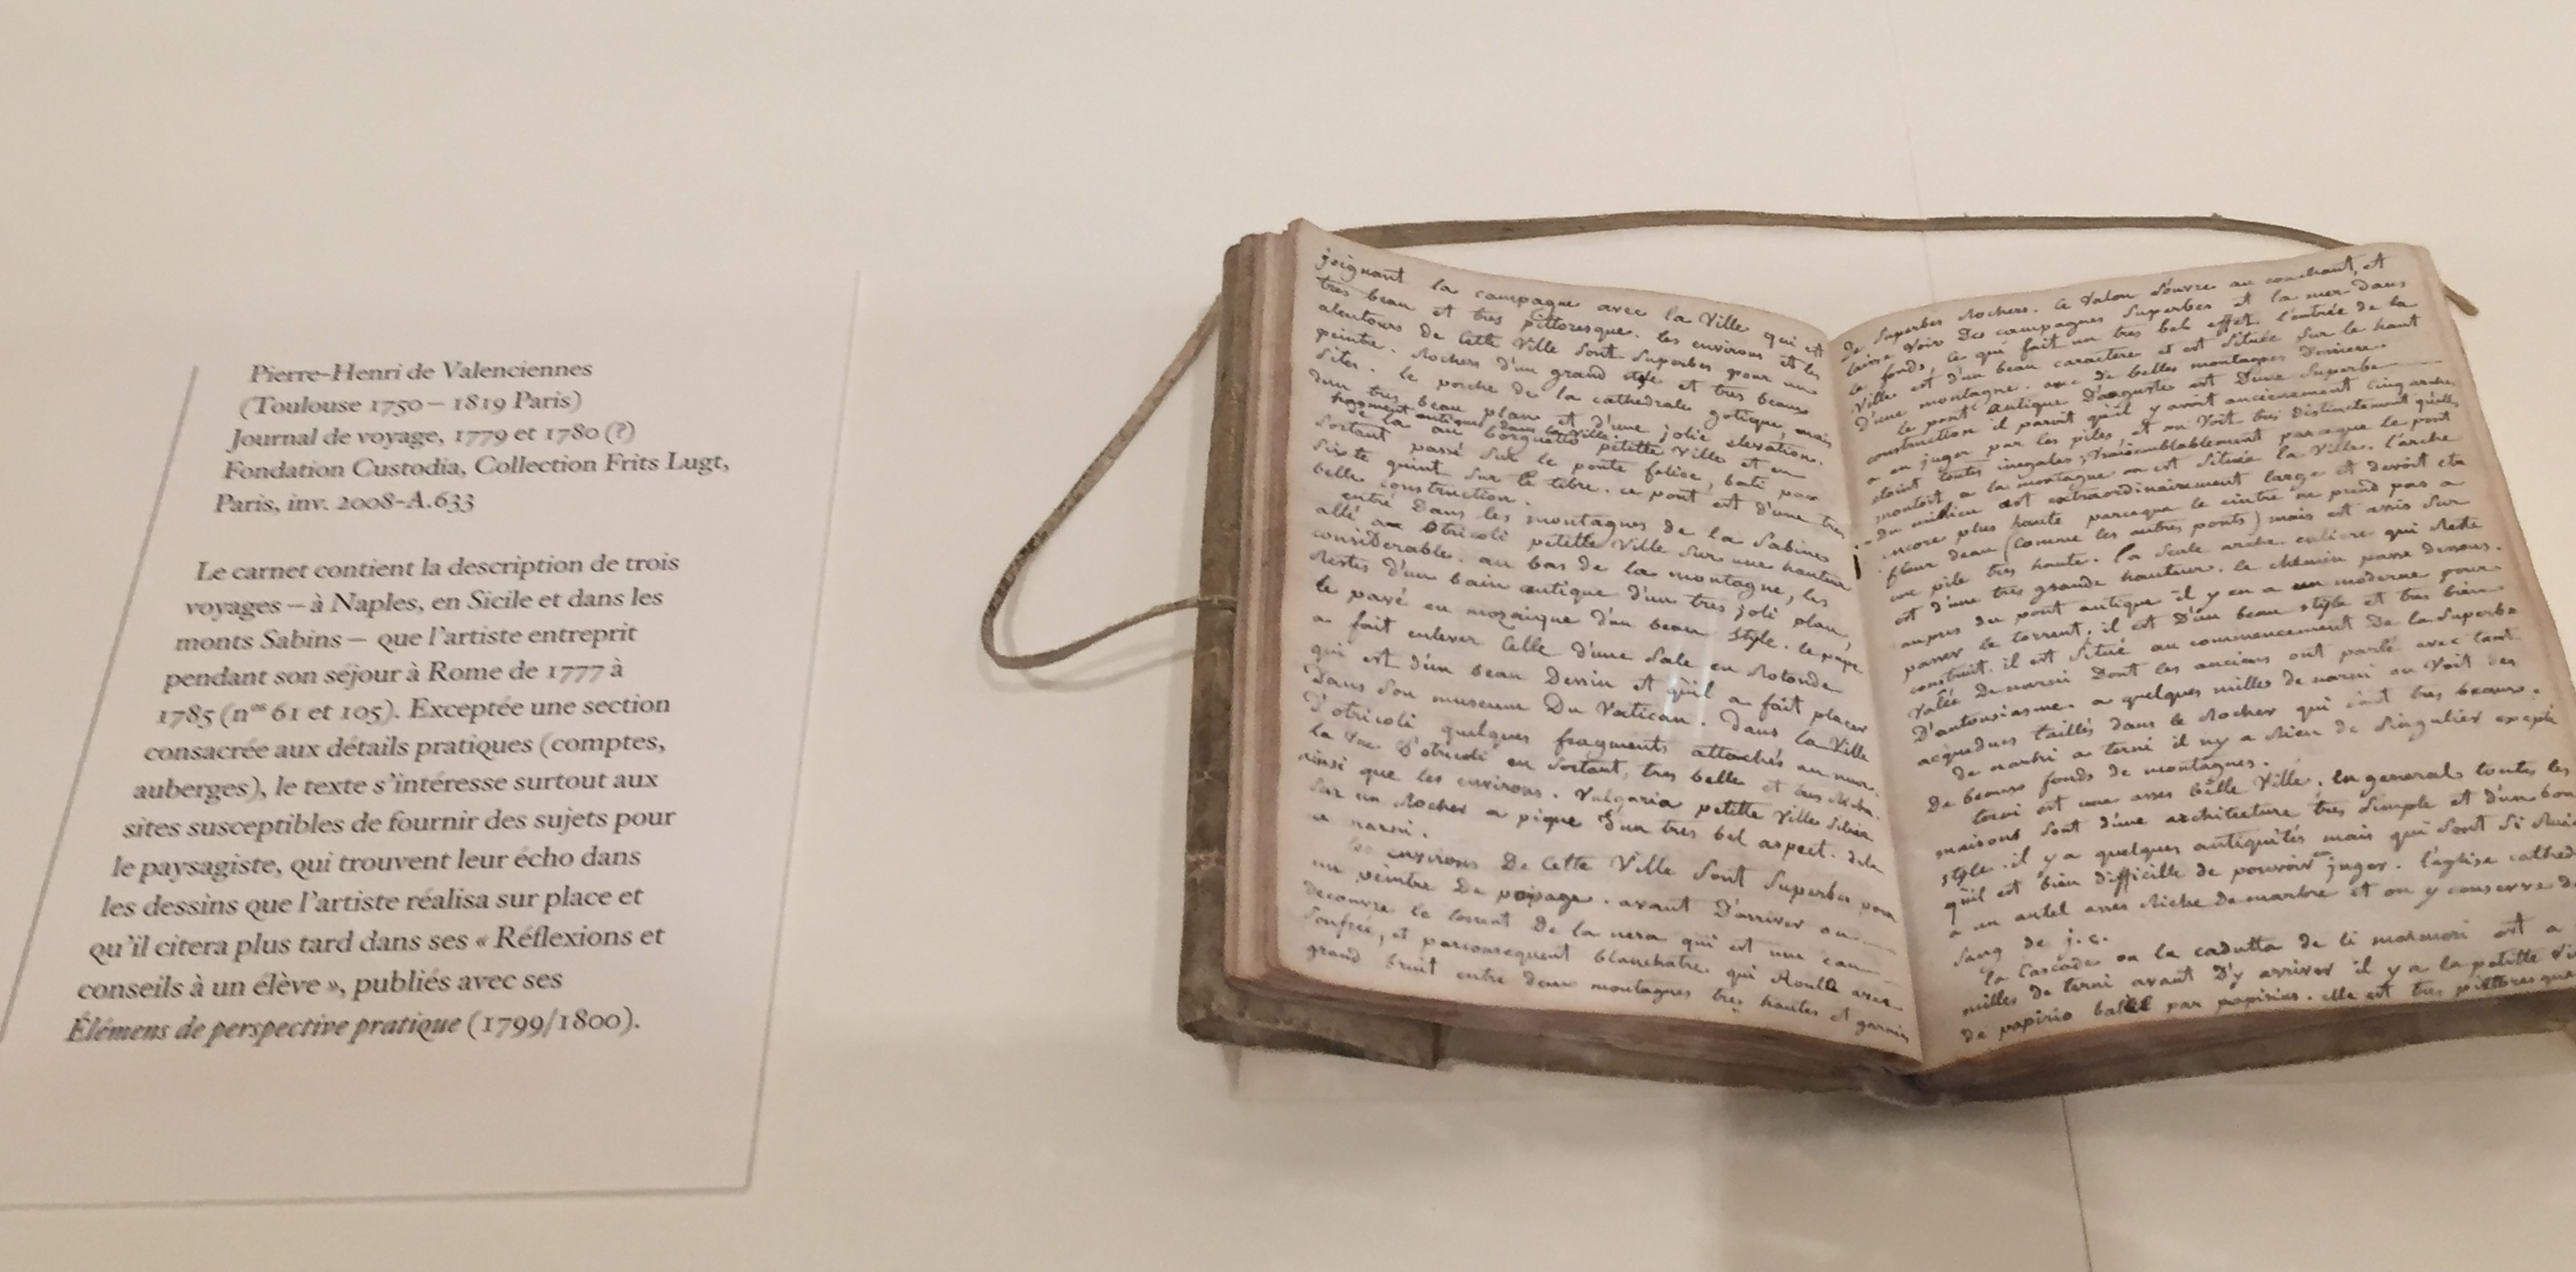 Pierre-Henri de Valenciennes
(Toulouse 1750 – 1819 Paris)
Journal de voyage, 1779 et 1780 (?)
Fondation Custodia, Collection Frits Lugt,
Paris, inv. 2008-A.633
Le carnet contient la description de trois
voyages – à Naples, en Sicile et dans les
monts Sabins – que l’artiste entreprit
pendant son séjour à Rome de 1777 à
1785 (nos 61 et 105). Exceptée une section
consacrée aux détails pratiques (comptes,
auberges), le texte s’intéresse surtout aux
sites susceptibles de fournir des sujets pour
le paysagiste, qui trouvent leur écho dans
les dessins que l’artiste réalisa sur place et
qu’il citera plus tard dans ses « Réflexions et
conseils à un élève », publiés avec ses
Élémens de perspective pratique (1799/1800).
joignant la campagne avec la Ville qui est
tres beau et tres pittoresque. les environs et les
alentours de Cette Ville Sont Superbes pour un
peintre. Rochers d'un grand style et tres beaux
Sites. le porche de la cathedrale gotique, mais
d'un tres beau plan et d'une jolie elevation.
fragment antiques dans la Ville.
de la au borguetto petitte Ville et en
Sortant passé Sur le ponte felice, bati par
Sixte quint Sur le tibre. ce pont est d'une tres
belle construction.
entré Dans les montagnes de la Sabine
allé a Otricoli petitte Ville Sur une hauteur
considerable. au bas de la montagne, les
Restes d'un bain antique d'un tres joli plan,
le pavé en mozaique d'un beau Style. le pape
a fait enlever Celle d'une Sale en Rotonde
qui est d'un beau Dessin et qu'il a fait placer
Dans Son museum Du Vatican. Dans la Ville
D'otricoli quelques fragments attachés au mur.
la Vue D'otricoli en Sortant, tres belle et tres Riche
ainsi que les environs. Vulgaria petitte Ville Située
Sur un Rocher a pique d'un tres bel aspect. de la
a narni.
les environs De Cette Ville Sont Superbes pour
un peintre De paisage. avant D'arriver on
decouvre le torrent De la nera qui est une eau
Soufrée, et parconsequent blanchatre qui Roulle avec
grand bruit entre deux montagnes tres hautes et garnies
de Superbes Rochers. Ce Valon S'ouvre au couchant, et
laisse Voir Des campagnes Superbes et la mer dans
le fonds, Ce qui fait un tres bel effet. l'entrée de la
Ville est d'un beau caractere et est Située Sur le haut
D'une montagne. avec de belles montagnes Derriere.
le pont Antique D'auguste est D'une Superbe
construction il paroit qu'il y avoit anciennement Cinq arches
a en juger par les piles, et on Voit tres distinctement qu'elles
etoint toutes inegales; Vraisemblablement parceque le pont
montoit a la montagne ou est Située la Ville. l'arche
du milieu est extraordinairement large et devoit etre
encore plus haute parceque le cintre ne prend pas a
fleur deau (comme les autres ponts) mais est assis Sur
une pile tres haute. la Seule arche entiere qui Reste
est d'une tres grande hauteur. le chemin passe dessous.
aupres du pont antique il y en a un moderne pour
passer le torrent. il est D'un beau style et tres bien
construit. il est Situé au commencement De la Superbe
Valée De narni Dont les anciens ont parlé avec tant
D'antousiasme. a quelques milles de narni on Voit des
acqueducs taillés dans le Rocher qui sont tres beaux.
de narni a terni il ny a Rien de Singulier excepté
De beaux fonds de montagnes.
terni est une asses belle Ville. En general toutes les
maisons Sont d'une architecture tres Simple et d'un bon
style. il y a quelques antiquités mais qui Sont Si
qu'il est bien difficille de pouvoir en juger. l'eglise
a un autel asses Riche De marbre et on y conserve
Sang de j.c.
la Cascade ou la cadutta de li marmori est a
milles de terni avant D'y arriver il y a la petitte
de papirio par papirius. elle est tres pittoresque